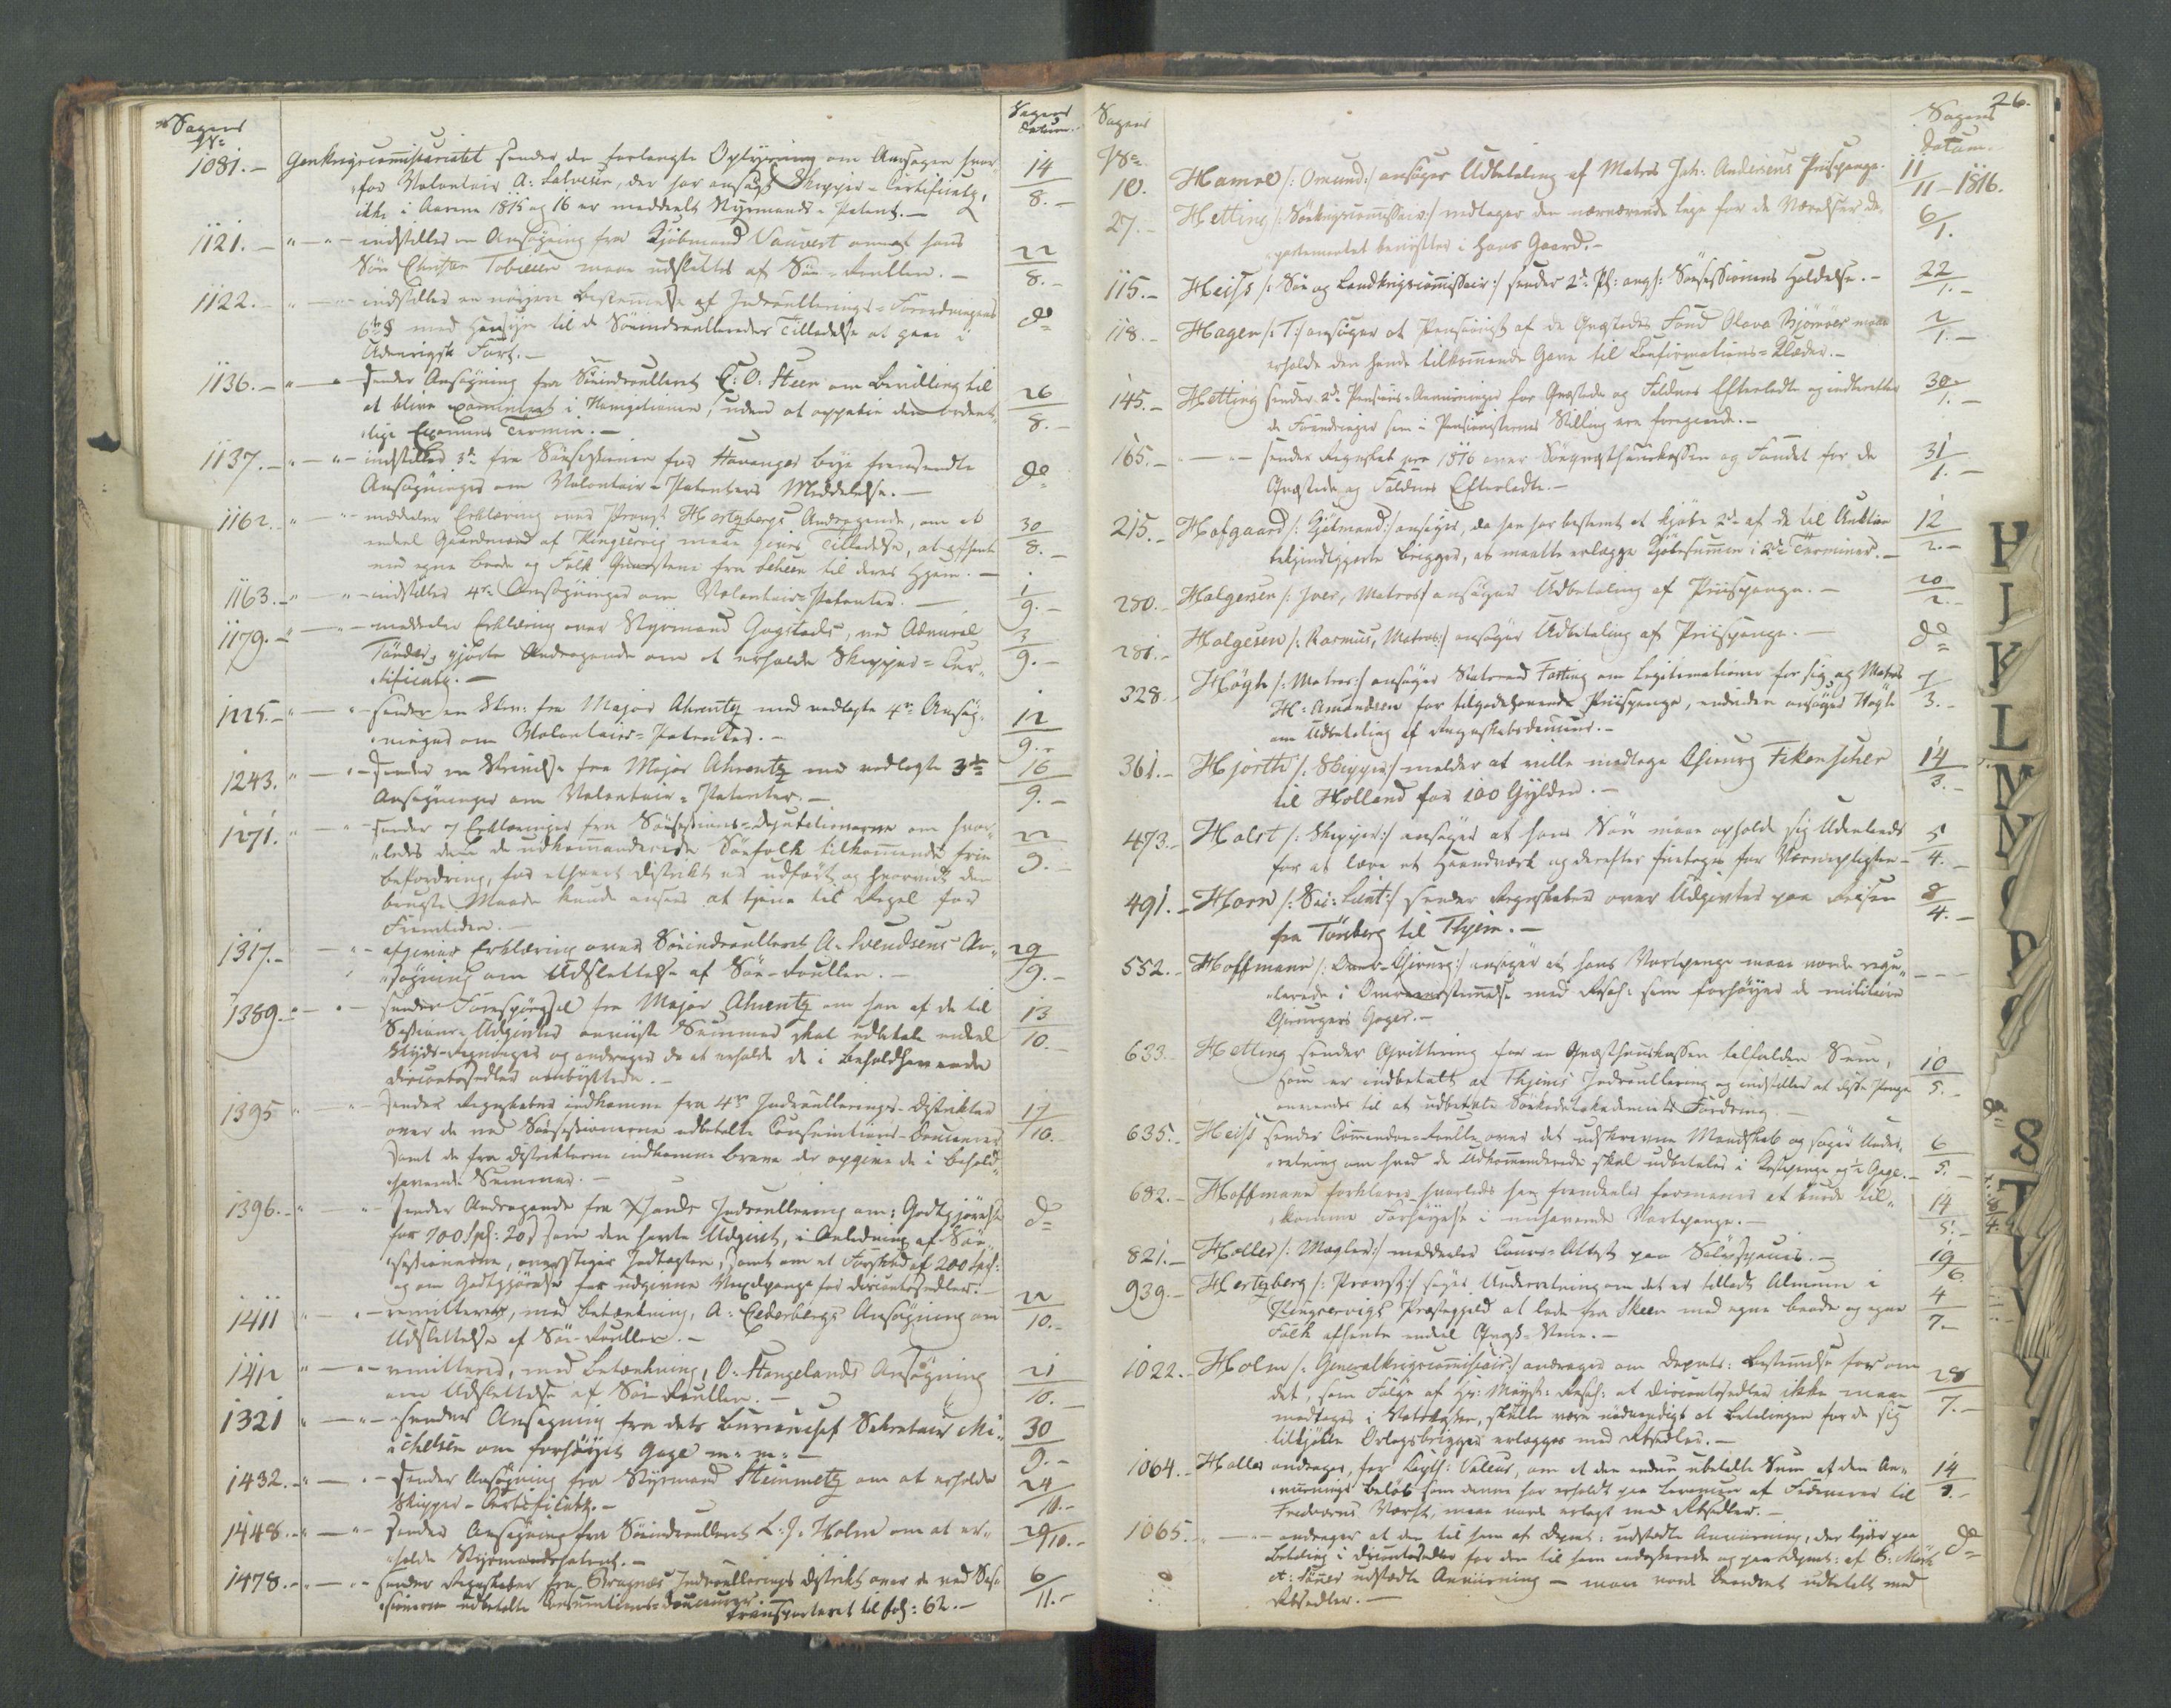 Sagens
No
Sagens
Datum
1081.- Genkrigscommissariatet sender den forlangte Oplysning om Aarsagen hvor-
for Volontair A: Salvesen, der har ansøgt Skipper-Certificats,
ikke i Aarene 1815 og 16 er meddeelt Styrmands-Patent.- 14/8.-
1121.- " - " - indstiller en Ansøgning fra Kjöbmand Vauvert om at hans
Sön Christen Tobiesen maae udslettes af Söe-Roullen.- 22/8.-
1122.- " - " - indstiller en nöiere Bestemmelse af Indroullerings-Forordningens
6te § med Hensyn til de Söeindroulleredes Tilladelse at gaae i
Udenrigsk Fart.- do
1136.- " - " - sender Ansøgning fra Söeindroulleret C: O: Steen om Bevilling til
at blive examineret i Navigationen, uden at oppebie den ordent-
lige Examens Termin.- 26/8.-
1137.- " - " - indstiller 3de fra Söesessionen for Stavanger bye fremsendte
Ansøgninger om Volontair-Patenters Meddelelse.- do
1162.- " - " - meddeler Erklæring over Provst Hertzbergs Andragende, om at
endeel Gaardmænd af Kingservig maae gives Tilladelse, at afhente
med egne Baade og Folk fra Skeen til deres Hjem.- 30/8.-
1163.- " - " - indstiller 4re Ansøgninger om Volontair-Patenter.- 1/9.-
1179.- " - " - meddeler Erklæring over Styrmand Gogstads, ved Admiral
Tönder, gjorte Andragende om at erholde Skipper-Cer-
tificats.- 3/9.-
1225.- " - " - sender en Skr: fra Major Ahrentz med vedlagte 4re Ansøg-
ninger om Volontair-Patenter.- 12/9.-
1243. " - " - sender en Skrivelse fra Major Ahrentz med vedlagte 3de
Ansøgninger om Volontair-Patenter.- 16/9.-
1271. " - " - sender 7 Erklæringer fra Söesessions-Deputationerne om hvor-
ledes den de udkommanderede Söefolk tilkommende frie
befordring, for ethvert District er udført og hvorvidt den
brugte Maade kunde ansees at tjene til Regel for
Fremtiden.- 22/9.-
1317.- " - " - afgiver Erklæring over Söeindroulleret A: Svendsens An-
søgning om Udslettelse af Söe-Roullen.- 29/9.-
1389.- " - " - sender Forespørgsel fra Major Ahrentz om han af de til
Sessions-Udgivter anviste Summer skal udbetale endeel
Skyds-Regninger og andrager da at erholde de i Behold havende
Discontosedler ombyttede.- 13/10.-
1395 " - " - sender Regnskaber indkomne fra 4re Indroullerings-Districter
over de ved Söesessionerne udbetalte Consumtions-Douceurer
samt de fra Districterne indkomne Breve der opgive de i Behold-
havende Summer.- 17/10.-
1396.- " - " - sender Andragende fra Xsands Indroullering om: Godtgjörelse
for 700 Spd: 20 s som den havte Udgivt, i Anledning af Söe-
sessionerne, overstiger Indtægten, samt om et Forskud af 200 Spd:
og om Godtgjörelse for udgivne Vexelpenge for Discontosedler.- do
1411 " - " - remitterer, med Betænkning, A: Cederbergs Ansøgning om
Udslettelse af Söe-Roullen.- 22/10.-
1412 " - " - remitterer, med Betænkning, O: Stangelands Ansøgning
om Udslettelse af Söe-Roullen.- 21/10.-
1321 " - " - sender Ansøgning fra dets Bureauchef Sekretair Mi-
chelsen om forhöiet Gage m: m:- 30/9.-
1432.- " - " - sender Ansøgning fra Styrmand Steinmetz om at erholde
Skipper-Certificats.- 24/10.-
1448.- " - " - sender Ansøgning fra Söeindroulleret L: J: Holm om at er-
holde Styrmandspatent.- 29/10.-
1478.- " - " - sender Regnskaber fra Bragnæs Indroullerings District over de ved Ses-
sionerne udbetalte Consumtions-Douceurer.- 6/11.-
Transporteret til fol: 62.-
26.
Sagens
No
Sagens
Datum.
10. Hamre /: Omund:/ ansøger Udbetaling af Matros Joh: Andersens Priispenge. 11/11-1816.
27.- Hetting /: Söekrigscommissair:/ modtager den nærværende Leje for de Værelser De-
partementet benytter i hans Gaard.- 6/1.
115.- Heiss /: Söe og Landkrigscommissair:/ sender 2de Pl: ang: Söesessionens Holdelse.- 22/1.-
118.- Hagen /: T:/ ansøger at Pensionist af de Qvæstedes Fond Olava Björnöer maae
erholde den hende tilkommende Gave til Confirmations-Klæder.- 2/1.-
145.- Hetting sender 2de Pensions-Anviisninger for Qvæstede og Faldnes Efterladte og indberetter
de Forandringer som i Pensionisternes Stilling ere foregaaede.- 30/1.-
165.- " - " - sender Regnskab pro 1816 over Söeqvæsthuuskassen og Fondet for de
Qvæstede og Faldnes Efterladte.- 31/1.-
215.- Hofgaard /: Kjöbmand:/ ansøger, da han har bestemt at kjöbe 2de af de til Auktion
bekjendtgjorte Brigger, at maatte erlægge Kjöbesummen i 2de Terminer.- 12/2.-
280.- Halgersen /: Iver, Matros:/ ansøger Udbetaling af Priispenge.- 20/2.-
281.- Holgesen /: Rasmus, Matros:/ ansøger Udbetaling af Priispenge.- do
328.- Högh /: Matros:/ ansøger Statsraad Fasting om Legitimationer for sig og Matros
H: Amundsen for tilgodehavende Priispenge, endvidere ansøger Högh
om Udbetaling af Regnskabsdouceur.- 7/3.-
361.- Hjorth /: Skipper:/ melder at ville medtage Chirurg Fikenscher
til Holland for 100 Gylden.- 14/3.-
473.- Holst /: Skipper:/ ansøger at hans Sön maae opholde sig Udenlands
for at lære et Haandværk og derefter fritages for Værnepligten.- 5/4.-
491.- Horn /: Sec: Lieut:/ sender Regnskaber over Udgivter paa Reisen
fra Tönsberg til Thjem.- 8/4.-
552.- Hoffmann /: Chirurg:/ ansøger at hans Vartpenge maae vorde regu-
lerede i Overeensstemmelse med Resol: som forhöyer de militaire
Chirurgers Gager.- - - -
633. Hetting sender Qvittering for en Qvæsthuuskassen tilfalden Sum,
som er indbetalt af Thjems Indroullering og indstiller at disse Penge
anvendes til at udbetale Söekadetakademiets Fordring.- 10/5.-
635.- Heiss sender Commando-Rulle over det udskrevne Mandskab og søger Under-
retning om hvad de Udkommanderede skal udbetales i Kostpenge og 1/2 Gage.- 6/5.-
682.- Hoffmann forklarer hvorledes han fremdeles formener at burde til-
komme Forhöyelse i nuhavende Vartpenge.- 14/5.-
821.- Holler /: Mægler:/ meddeler Cours-Attest paa Sölvspecies.- 19/6.
939.- Hertzberg /: Provst:/ søger Underretning om det er tilladt Almuen i
Kingservigs Præstegjeld at lade fra Skeen med egne Baade og egne
Folk afhente endeel.- 4/7.-
1022.- Holm /: Generalkrigscommissair:/ andrager om Depart: Bestemmelse for om
det, som Fölge af Hs: Mayst: Resol: at Discontosedler ikke maae
modtages i Kasser, skulle være nödvendigt at Betalingen for de sig
tilkjöbte Orlogsbrigger erlægges med Rbsedler.- 28/7.-
1064.- Holler andrager, for Capt: Valeur, om at den endnu ubetalte Sum af den An-
viisnings Beløb som denne har erholdt paa Leverancen af til
Fredriksværns Værft, maae vorde erlagt med Rbsedler.- 14/8.-
1065.- " - " - andrager at den til ham af Depart: udstedte Anviisning, der lyder paa
Betaling i Discontosedler for den til ham endosserede og paa Depart: af C: Mörk
et: Sönner udstædte Anviisning - maae vorde beordret udbetalt med
Rbsedler.- do
H
J
K
L
M
N
O
P
S
T
U
V
Y